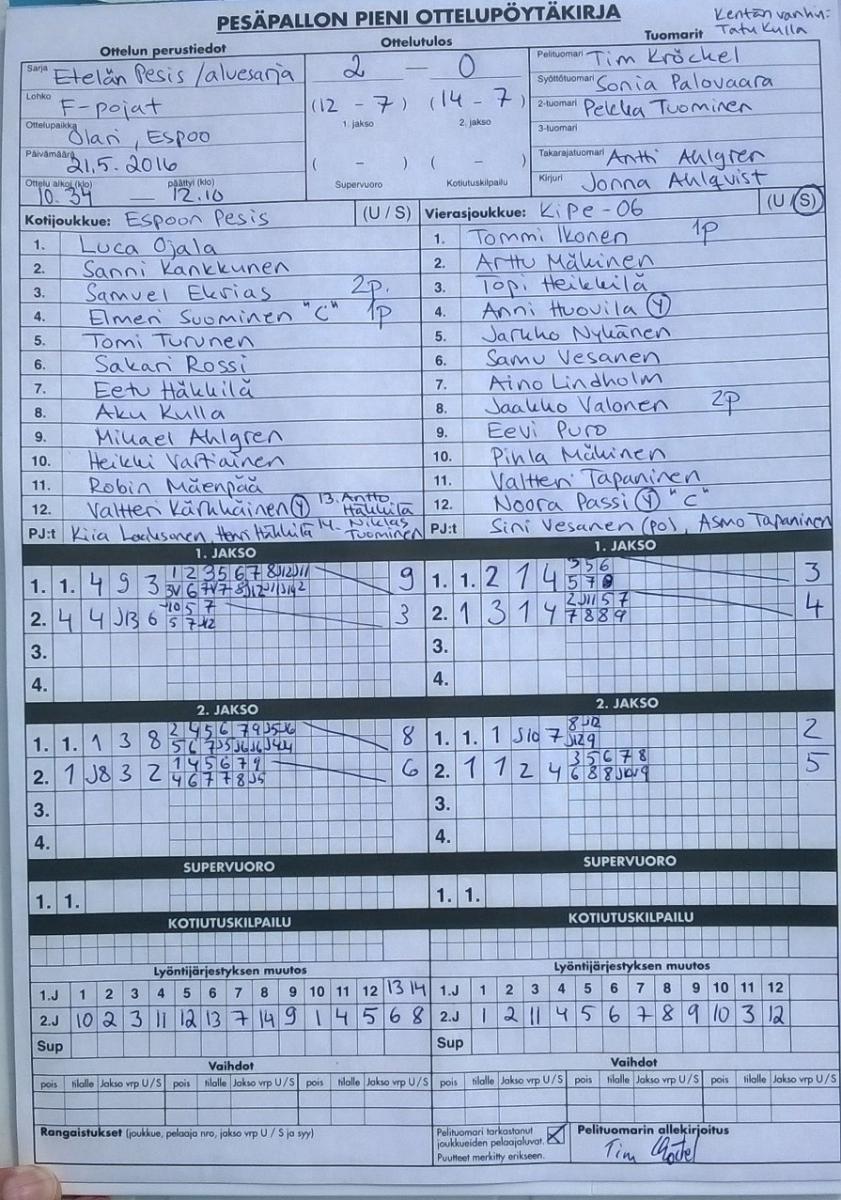 PESÄPALLON PIENI OTTELUPÖYTÄKIRJA
Kentän vanhin:
Tatu Kulla
Ottelun perustiedot
Ottelutulos
Tuomarit
Sarja Etelän Pesis /aluesarja
2 — 0
Pelituomari Tim Kröckel
Syöttötuomari Sonia Palovaara
Lohko F-pojat
(12 - 7) (14 - 7)
2-tuomari Pekka Tuominen
1. jakso 2. jakso
Ottelupaikka Olari, Espoo
3-tuomari
Päivämäärä 21.5.2016
( - ) ( - )
Takarajatuomari Antti Ahlgren
Ottelu alkoi (klo) päättyi (klo)
10.34 — 12.10
Supervuoro Kotiutuskilpailu
Kirjuri Jonna Ahlqvist
Kotijoukkue: Espoon Pesis (U / S)
1. Luca Ojala
2. Sanni Kankkunen
3. Samuel Ekrias 2p.
4. Elmeri Suominen "C" 1p
5. Tomi Turunen
6. Sakari Rossi
7. Eetu Häkkilä
8. Aku Kulla
9. Mikael Ahlgren
10. Heikki Vartiainen
11. Robin Mäenpää
12. Valtteri Kärkkäinen 13. Antto Häkkilä
PJ:t Kiia Laaksonen, Henri Häkkilä 14. Niklas Tuominen
Vierasjoukkue: KiPe-06 (U / S)
1. Tommi Ikonen 1p
2. Arttu Mäkinen
3. Topi Heikkilä
4. Anni Huovila
5. Jarkko Nykänen
6. Samu Vesanen
7. Aino Lindholm
8. Jaakko Valonen 2p
9. Eevi Puro
10. Pihla Mäkinen
11. Valtteri Tapaninen
12. Noora Passi "C"
PJ:t Sini Vesanen (po), Asmo Tapaninen
1. JAKSO
1. 1. 4 9 3 9
2. 4 4 J13 6 3
3.
4.
1. JAKSO
1. 1. 2 1 4 3 5 6 3
5 7 8
2. 1 3 1 4 2 J11 5 7 4
7 8 8 9
3.
4.
2. JAKSO
1. 1. 1 3 8 8
2. 1 J8 3 2 1 4 5 6 7 9 6
4 6 7 7 8 J5
3.
4.
2. JAKSO
1. 1. 1 J10 7 8 J12 2
J12 9
2. 1 1 2 4 3 5 6 7 8 5
6 8 8 J10 9
3.
4.
SUPERVUORO
1. 1.
SUPERVUORO
1. 1.
KOTIUTUSKILPAILU
KOTIUTUSKILPAILU
Lyöntijärjestyksen muutos
1.J 1 2 3 4 5 6 7 8 9 10 11 12 13 14
2.J 10 2 3 11 12 13 7 14 9 1 4 5 6 8
Sup
Lyöntijärjestyksen muutos
1.J 1 2 3 4 5 6 7 8 9 10 11 12
2.J 1 2 11 4 5 6 7 8 9 10 3 12
Sup
Vaihdot
pois tilalle Jakso vrp U / S pois tilalle Jakso vrp U / S pois tilalle Jakso vrp U / S
Vaihdot
pois tilalle Jakso vrp U / S pois tilalle Jakso vrp U / S pois tilalle Jakso vrp U / S
Rangaistukset (joukkue, pelaaja nro, jakso vrp U / S ja syy)
Pelituomari tarkastanut
joukkueiden pelaajaluvat.
Puutteet merkitty erikseen.
Pelituomarin allekirjoitus
Tim